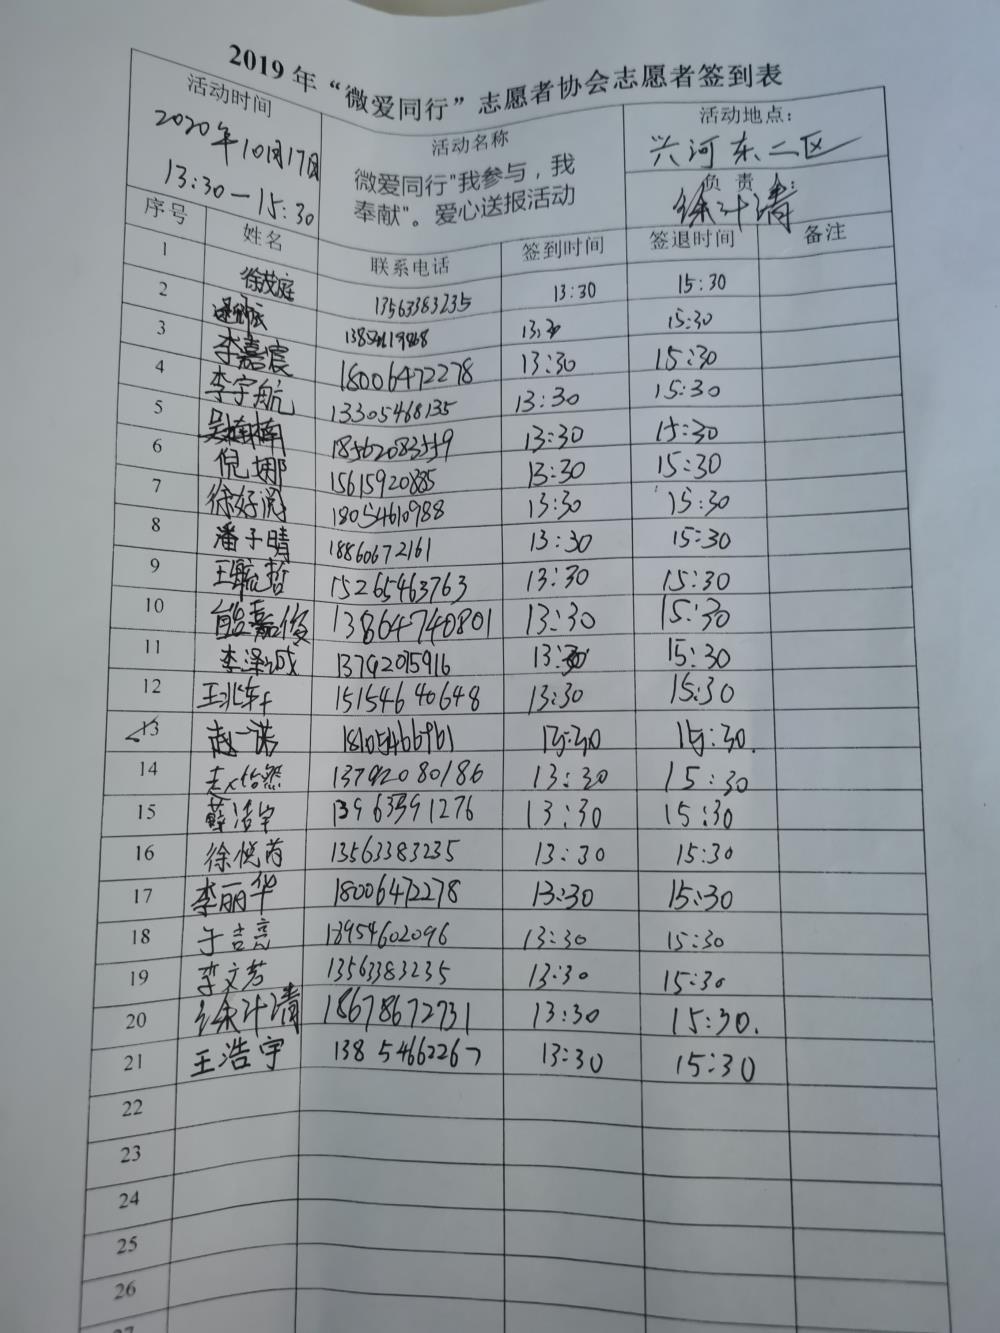 2019年“微爱同行”志愿者协会志愿者签到表
活动时间 活动名称 活动地点：
2020年10月17日 兴河东二区
13:30—15:30 微爱同行"我参与，我 负 责 ：
奉献"。爱心送报活动 徐汁清
序号 姓名 联系电话 签到时间 签退时间 备注
1 徐茂庭 13563383235 13:30 15:30
2 13:30 15:30
3 李嘉宸 18006472278 13:30 15:30
4 李宇航 13305468135 13:30 15:30
5 吴楠楠 18562083559 13:30 15:30
6 倪娜 15615920885 13:30 15:30
7 徐好阅 18054610988 13:30 15:30
8 潘子晴 18860672161 13:30 15:30
9 王毓哲 15265463763 13:30 15:30
10 嘉俊 13864740801 13:30 15:30
11 李泽成 13792075916 13:30 15:30
12 15154640648 13:30 15:30
13 赵一诺 15:30 15:30.
14 赵怡然 13792080186 13:30 15:30
15 薛洁宇 13963591276 13:30 15:30
16 徐悦芮 13563383235 13:30 15:30
17 李丽华 18006472278 13:30 15:30
18 于吉亮 18954602096 13:30 15:30
19 李文芳 13563383235 13:30 15:30
20 徐汁清 18678672731 13:30 15:30.
21 王浩宇 13854662267 13:30 15:30
22
23
24
25
26
27